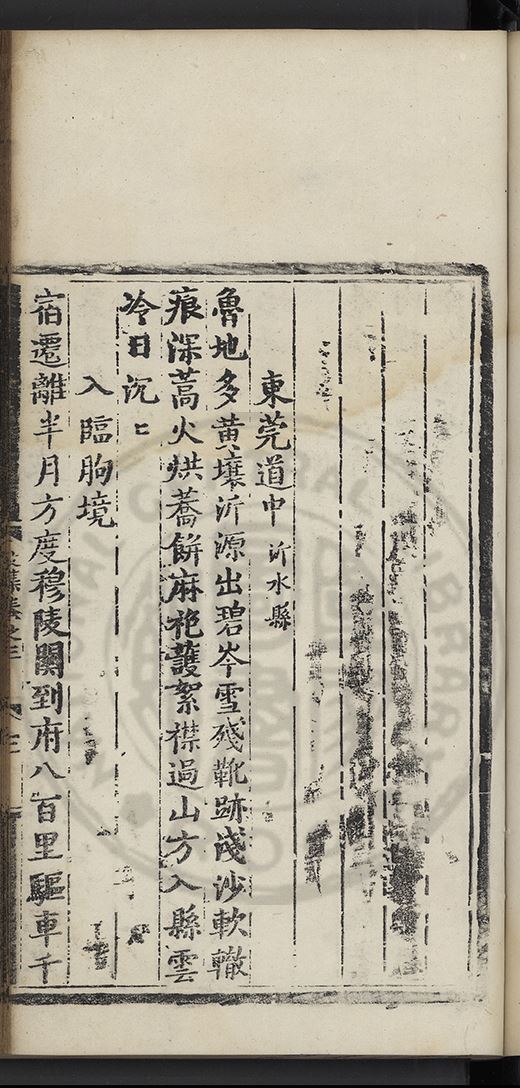 東莞道中 沂水縣
魯地多黃壤沂源出碧岑雪殘靴跡淺沙軟轍
痕深蒿火烘蕎餅麻袍護絮襟過山方入縣雲
冷日沉〻
入臨朐境
宿遷離半月方度穆陵關到府八百里驅車千